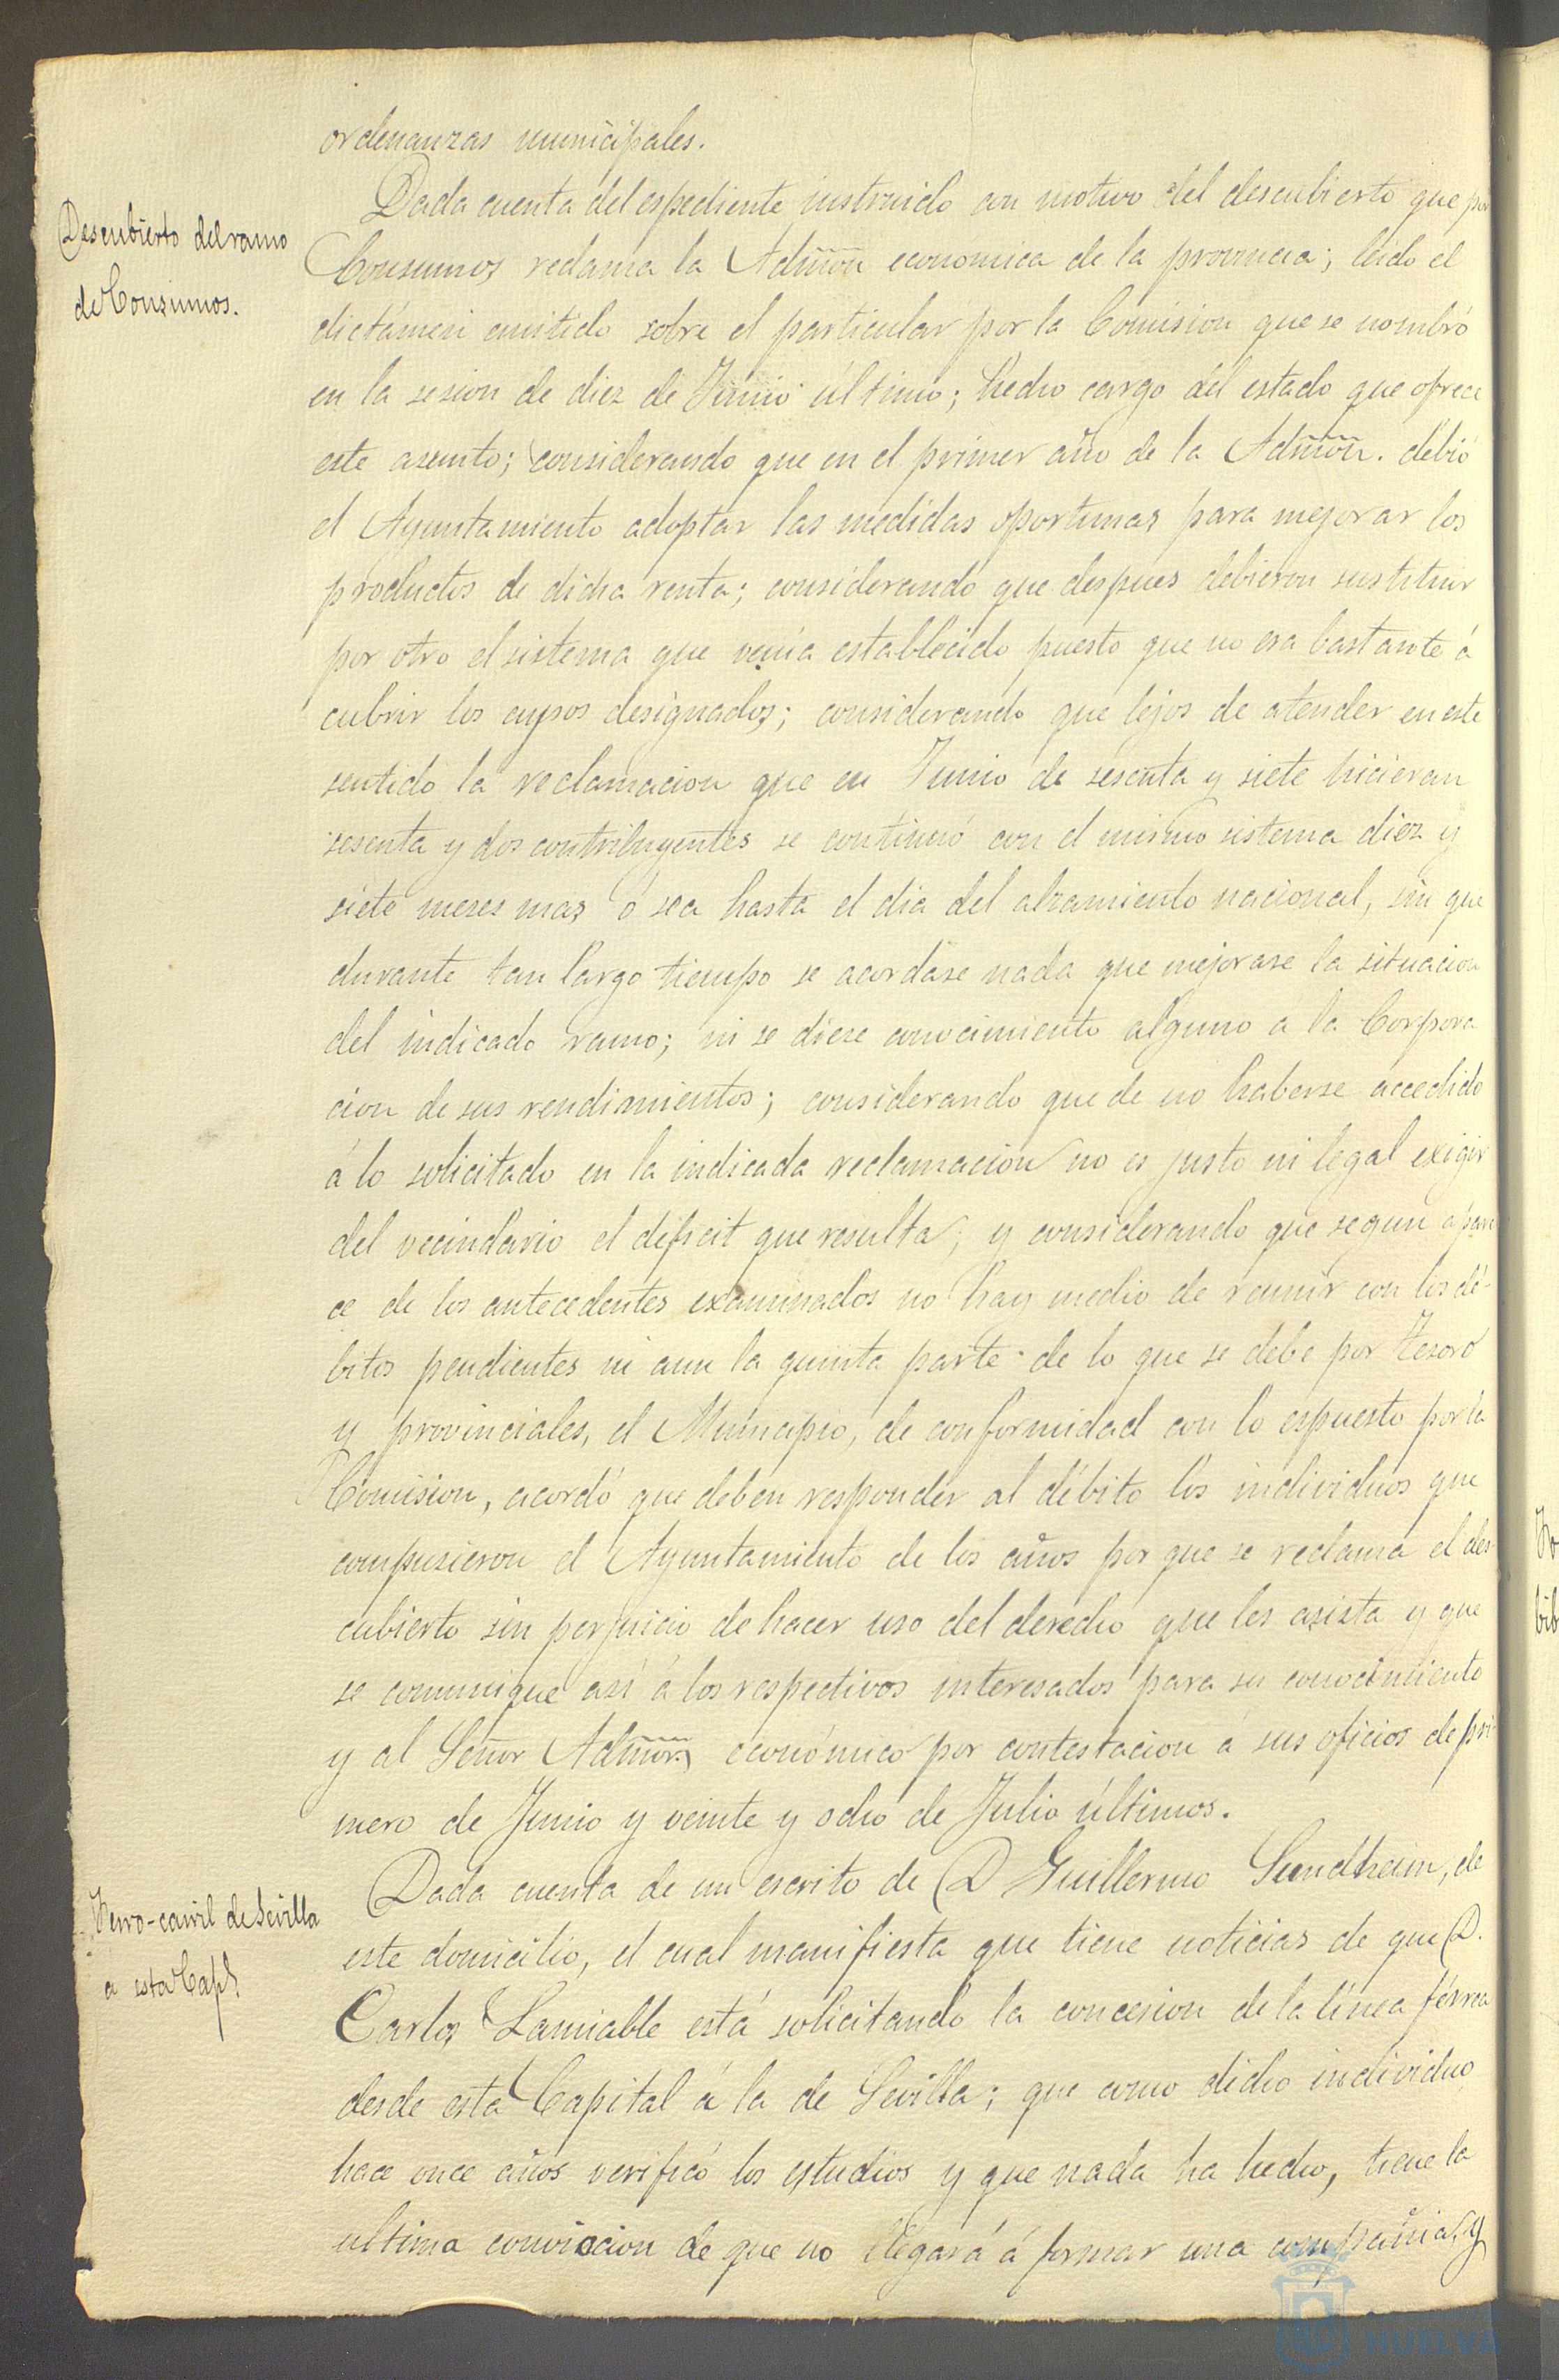 ordenanzas municipales.
Descubierto del ramo
de Consumos.
Dada cuenta del espediente instruido con motivo del descubierto que por
Consumos reclama la Admon economica de la provincia; leido el
dictámen emitido sobre el particular por la Comision que se nombró
en la sesion de diez de Junio último; hecho cargo del estado que ofrece
este asunto; considerando que en el primer año de la Admon. debió
el Ayuntamiento adoptar las medidas oportunas para mejorar los
productos de dicha renta; considerando que despues debieron sustituir
por otro el sistema que venia establecido puesto que no era bastante á
cubrir los cupos designados; considerando que lejos de atender en este
sentido la reclamacion que en Junio de sesenta y siete hicieran
sesenta y dos contribuyentes se continuó con el mismo sistema diez y
siete meses mas ó sea hasta el dia del alzamiento nacional, sin que
durante tan largo tiempo se acordase nada que mejorase la situacion
del indicado ramo; ni se diese conocimiento alguno á la Corpora
cion de sus rendimientos; considerando que de no haberse accedido
á lo solicitado en la indicada reclamacion no es justo ni legal exigir
del vecindario el déficit que resulta; y considerando que segun apare
ce de los antecedentes examinados no hay medio de reunir con los dé-
bitos pendientes ni aun la quinta parte de lo que se debe por Tesoro
y provinciales, el Municipio, de conformidad con lo espuesto por la
Comision, acordó que deben responder al débito los individuos que
compusieron el Ayuntamiento de los años por que se reclama el des
cubierto sin perjuicio de hacer uso del derecho que les asista y que
se comunique asi á los respectivos interesados para su conocimiento
y al Señor Admor económico por contestacion á sus oficios de pri
mero de Junio y veinte y ocho de Julio últimos.
Ferro-carril de Sevilla
á esta Capl.
Dada cuenta de un escrito de D Guillermo Sundheim, de
este domicilio, el cual manifiesta que tiene noticias de que D.
Carlos Lamiable está solicitando la concesion de la línea férrea
desde esta Capital á la de Sevilla; que como dicho individuo
hace once años verificó los estudios y que nada ha hecho, tiene la
ultima conviccion de que no llegará á formar una compañia, y
HUELVA